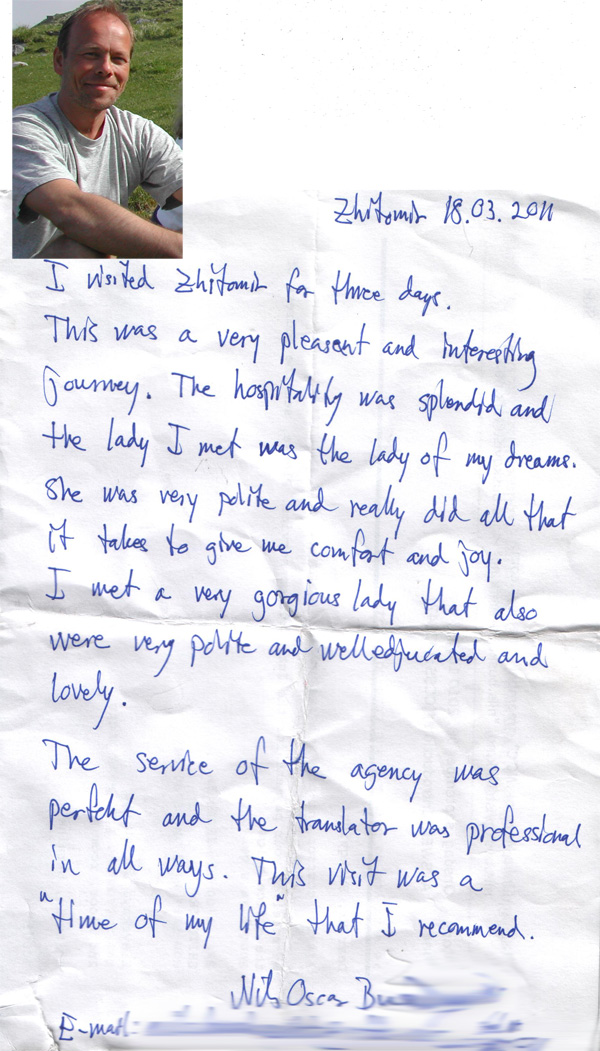 Zhitomir 18.03.2011
I visited Zhitomir for three days.
This was a very pleasent and interesting
journey. The hospitality was splendid and
the lady I met was the lady of my dreams.
She was very polite and really did all that
it takes to give me comfort and joy.
I met a very gorgious lady that also
were very polite and welledjucated and
lovely.
The service of the agency was
perfekt and the translator was professional
in all ways. This visit was a
"time of my life" that I recommend.
Nils Oscar
E-mail: